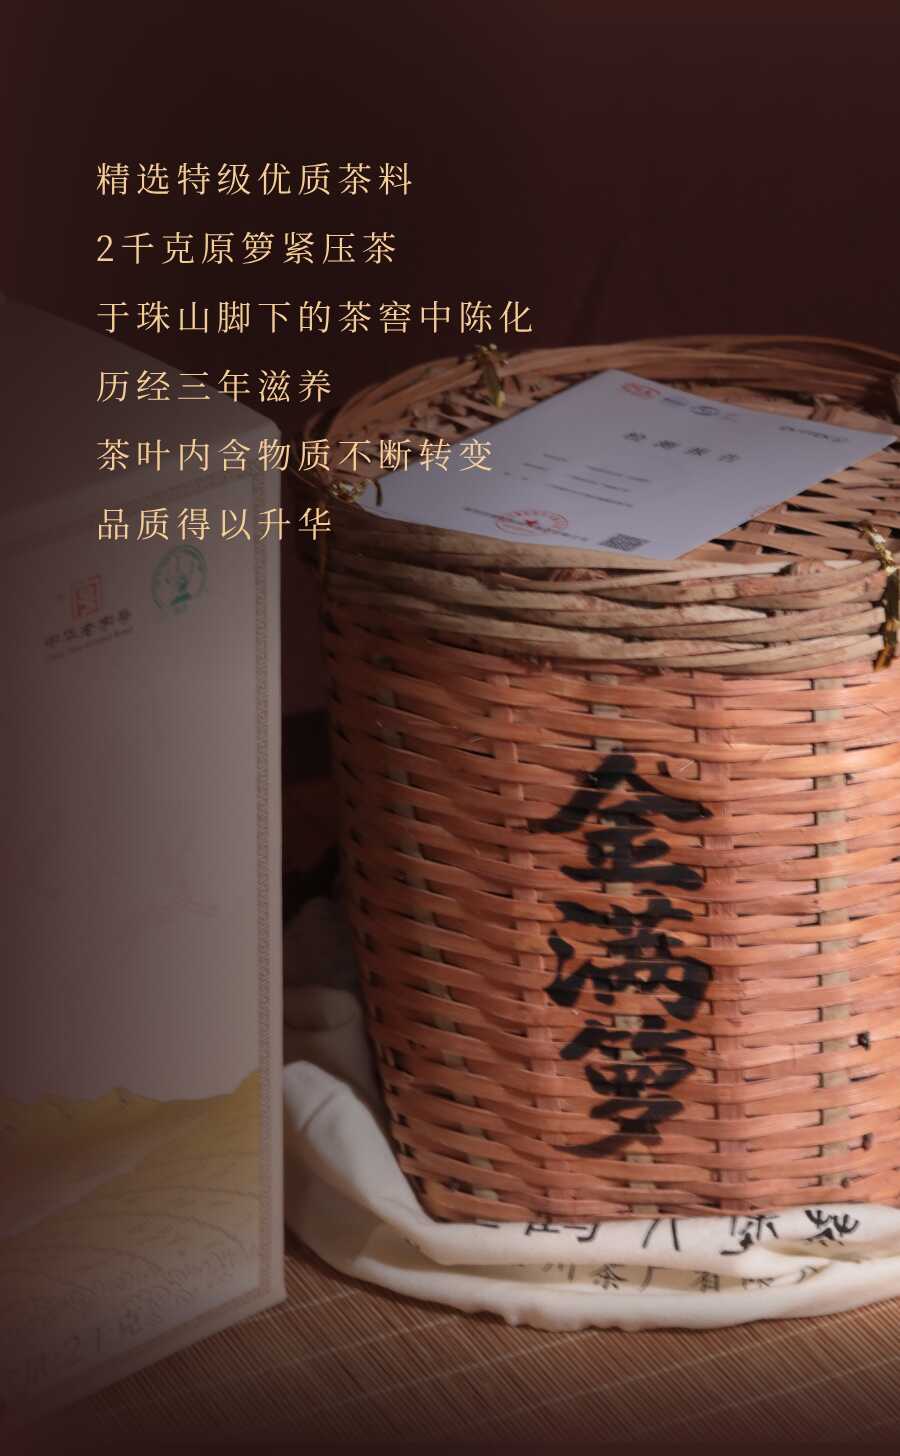 精选特级优质茶料
2千克原箩紧压茶
于珠山脚下的茶窖中陈化
历经三年滋养
茶叶内含物质不断转变
品质得以升华
检测报告
中华老字号
金满箩
鹤六堡茶
川茶厂有限公
2千克